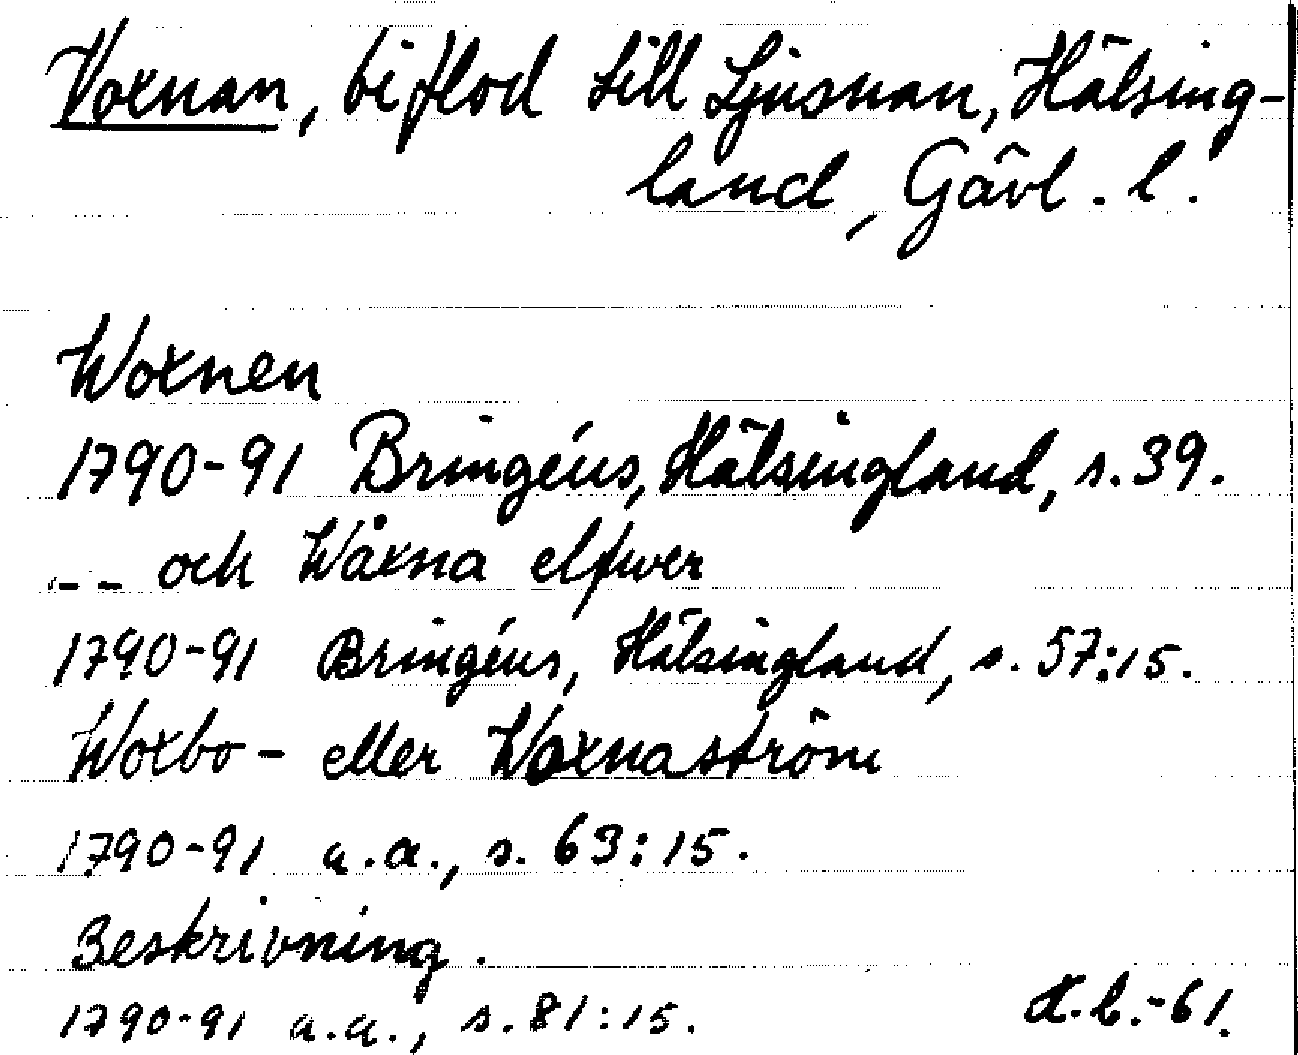 Voxnan, biflod till Ljusnan, Hälsing-
land, Gävl. l.
Woxnen
1790-91 Bringéus, Hälsingland, s. 39.
-- och Wåxna elfwer
1790-91 Bringéus, Hälsingland, s. 57:15.
Woxbo- eller Woxnaström
1790-91 a.a., s. 63:15.
Beskrivning.
1790-91 a.a., s. 81:15.